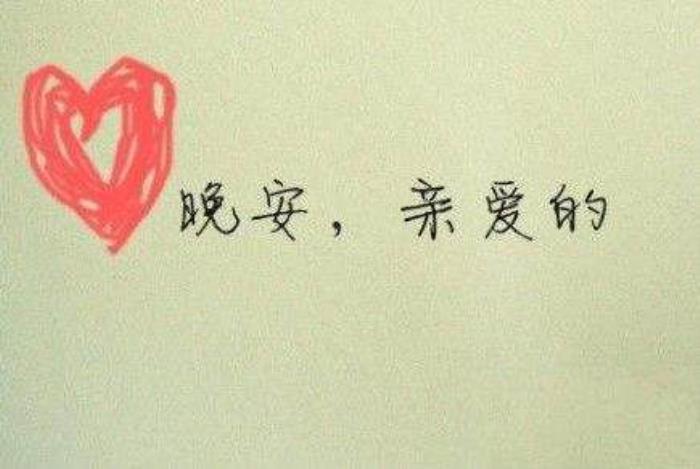 晚安，亲爱的